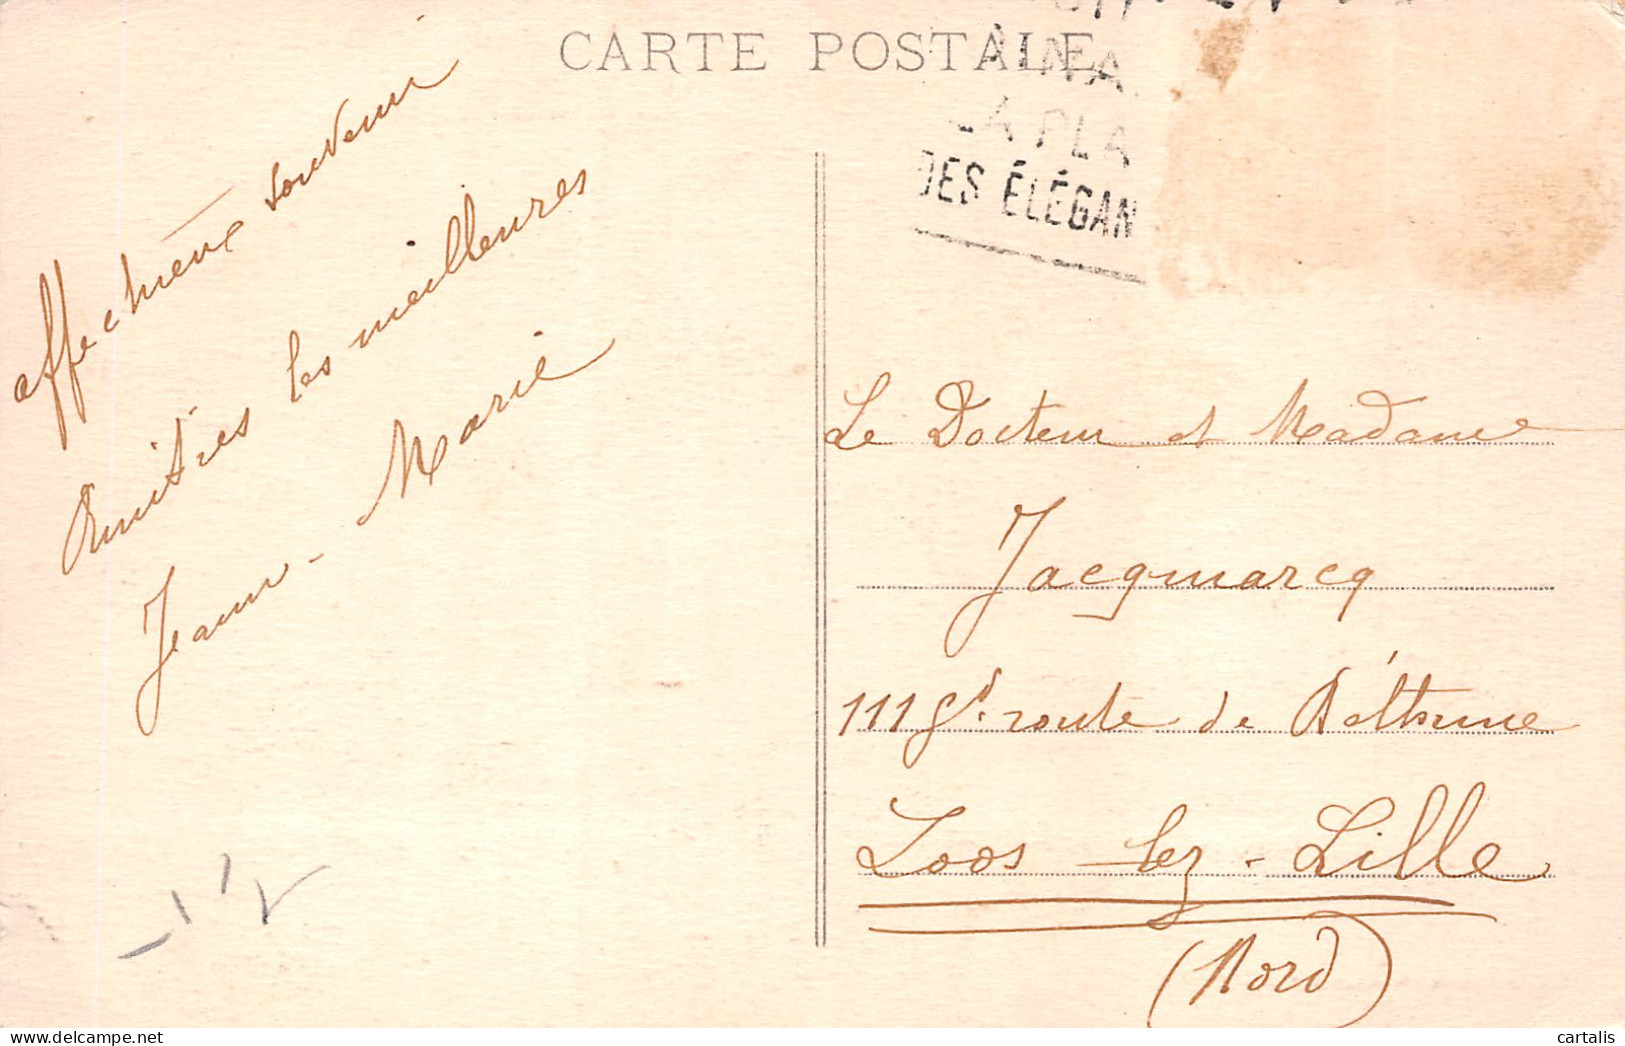 CARTE POSTALE
INA
LA PLA
DES ÉLÉGAN
affectueux souvenir
Amitiés les meilleures
Jeanne-Marie
Le Docteur et Madame
Jacqmarcq
111 Gd. route de Béthune
Loos-lez-Lille
(Nord)
cartalis
delcampe.net